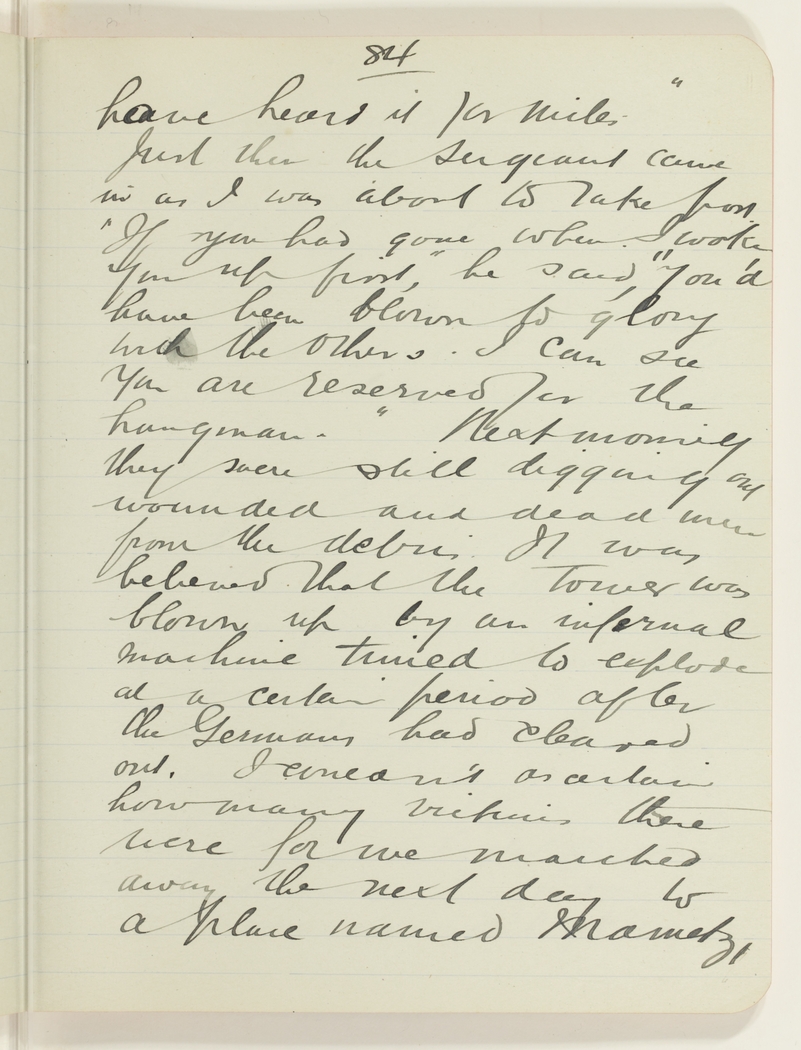 84
have heard it for miles."
Just then the sergeant came
in as I was about to take post.
"If you had gone when I woke
you up first," he said, "you'd
have been blown to glory
with the others. I can see
you are reserved for the
hangman." Next morning
they were still digging out
wounded and dead men
from the debris. It was
believed that the tower was
blown up by an infernal
machine timed to explode
at a certain period after
the Germans had cleared
out. I couldn't ascertain
how many victims there
were for we marched
away the next day to
a place named Mametz,